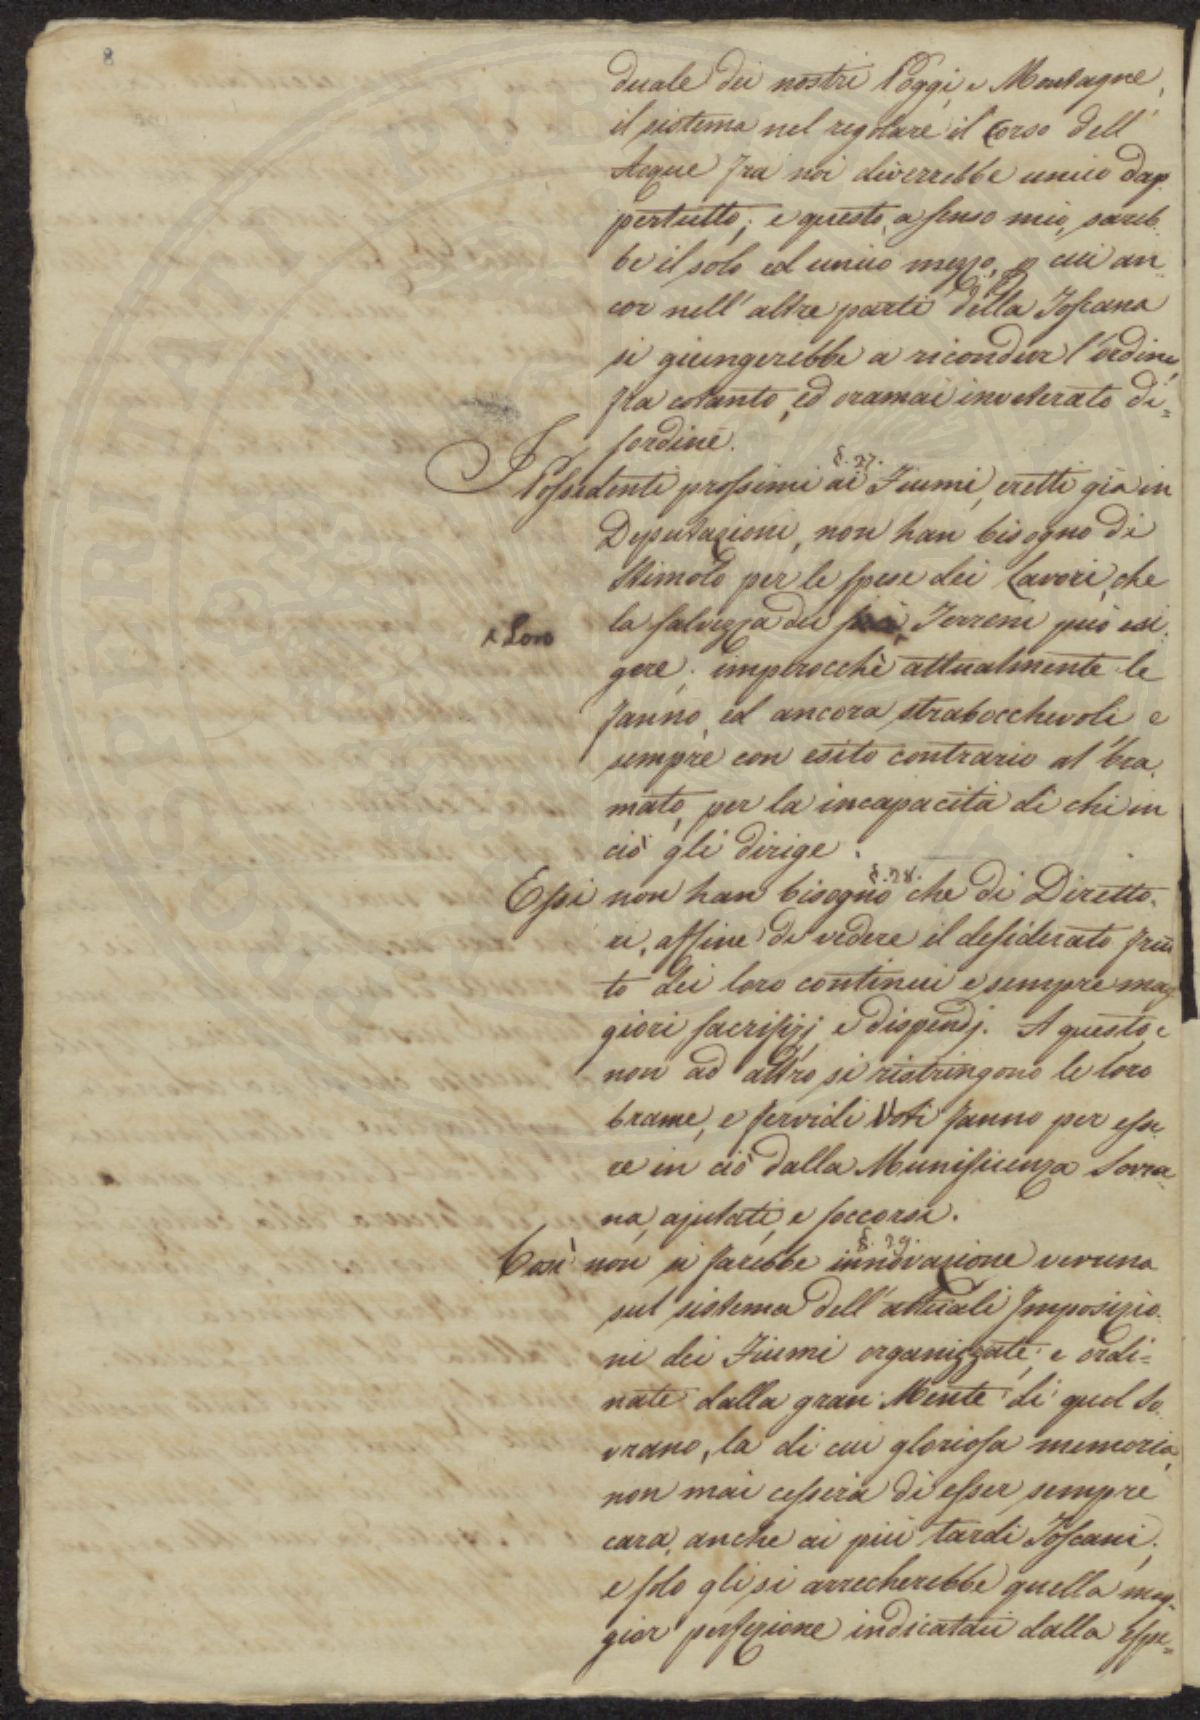 8
duale dei nostri Poggi, e Montagne,
il sistema nel regolare il Corso dell'
Acque fra noi diverrebbe unico dap
pertutto; e questo, a senso mio, sareb
be il solo ed unico mezzo, p cui an
cor nell'altre parti della Toscana
si giungerebbe a ricondur l'ordine
fra cotanto, ed oramai inveterato di=
sordine.
§. 27.
I Possidenti prossimi ai Fiumi, eretti già in
Deputazioni, non han bisogno di
stimolo per le spese dei Lavori, che
la salvezza dei Terreni può esi
x Loro
gere; imperocchè attualmente le
fanno, ed ancora strabocchevoli, e
sempre con esito contrario al bra
mato, per la incapacità di chi in
ciò gli dirige.
§. 28.
Essi non han bisogno che di Diretto
ri, affine di vedere il desiderato frut
to dei loro continui e sempre mag
giori sacrifizj e dispendj. A questo e
non ad altro si ristringono le loro
brame, e fervidi Voti fanno per esse
re in ciò dalla Munificenza Sovra
na, ajutati, e soccorsi.
§. 29.
Così non si farebbe innovazione veruna
sul sistema dell'attuali Imposizio
ni dei Fiumi organizzate, e ordi=
nate dalla gran Mente di quel So
vrano, la di cui gloriosa memoria,
non mai cesserà di esser sempre
cara, anche ai più tardi Toscani;
e solo gli si arrecherebbe quella mag=
gior perfezione indicataci dalla Espe=